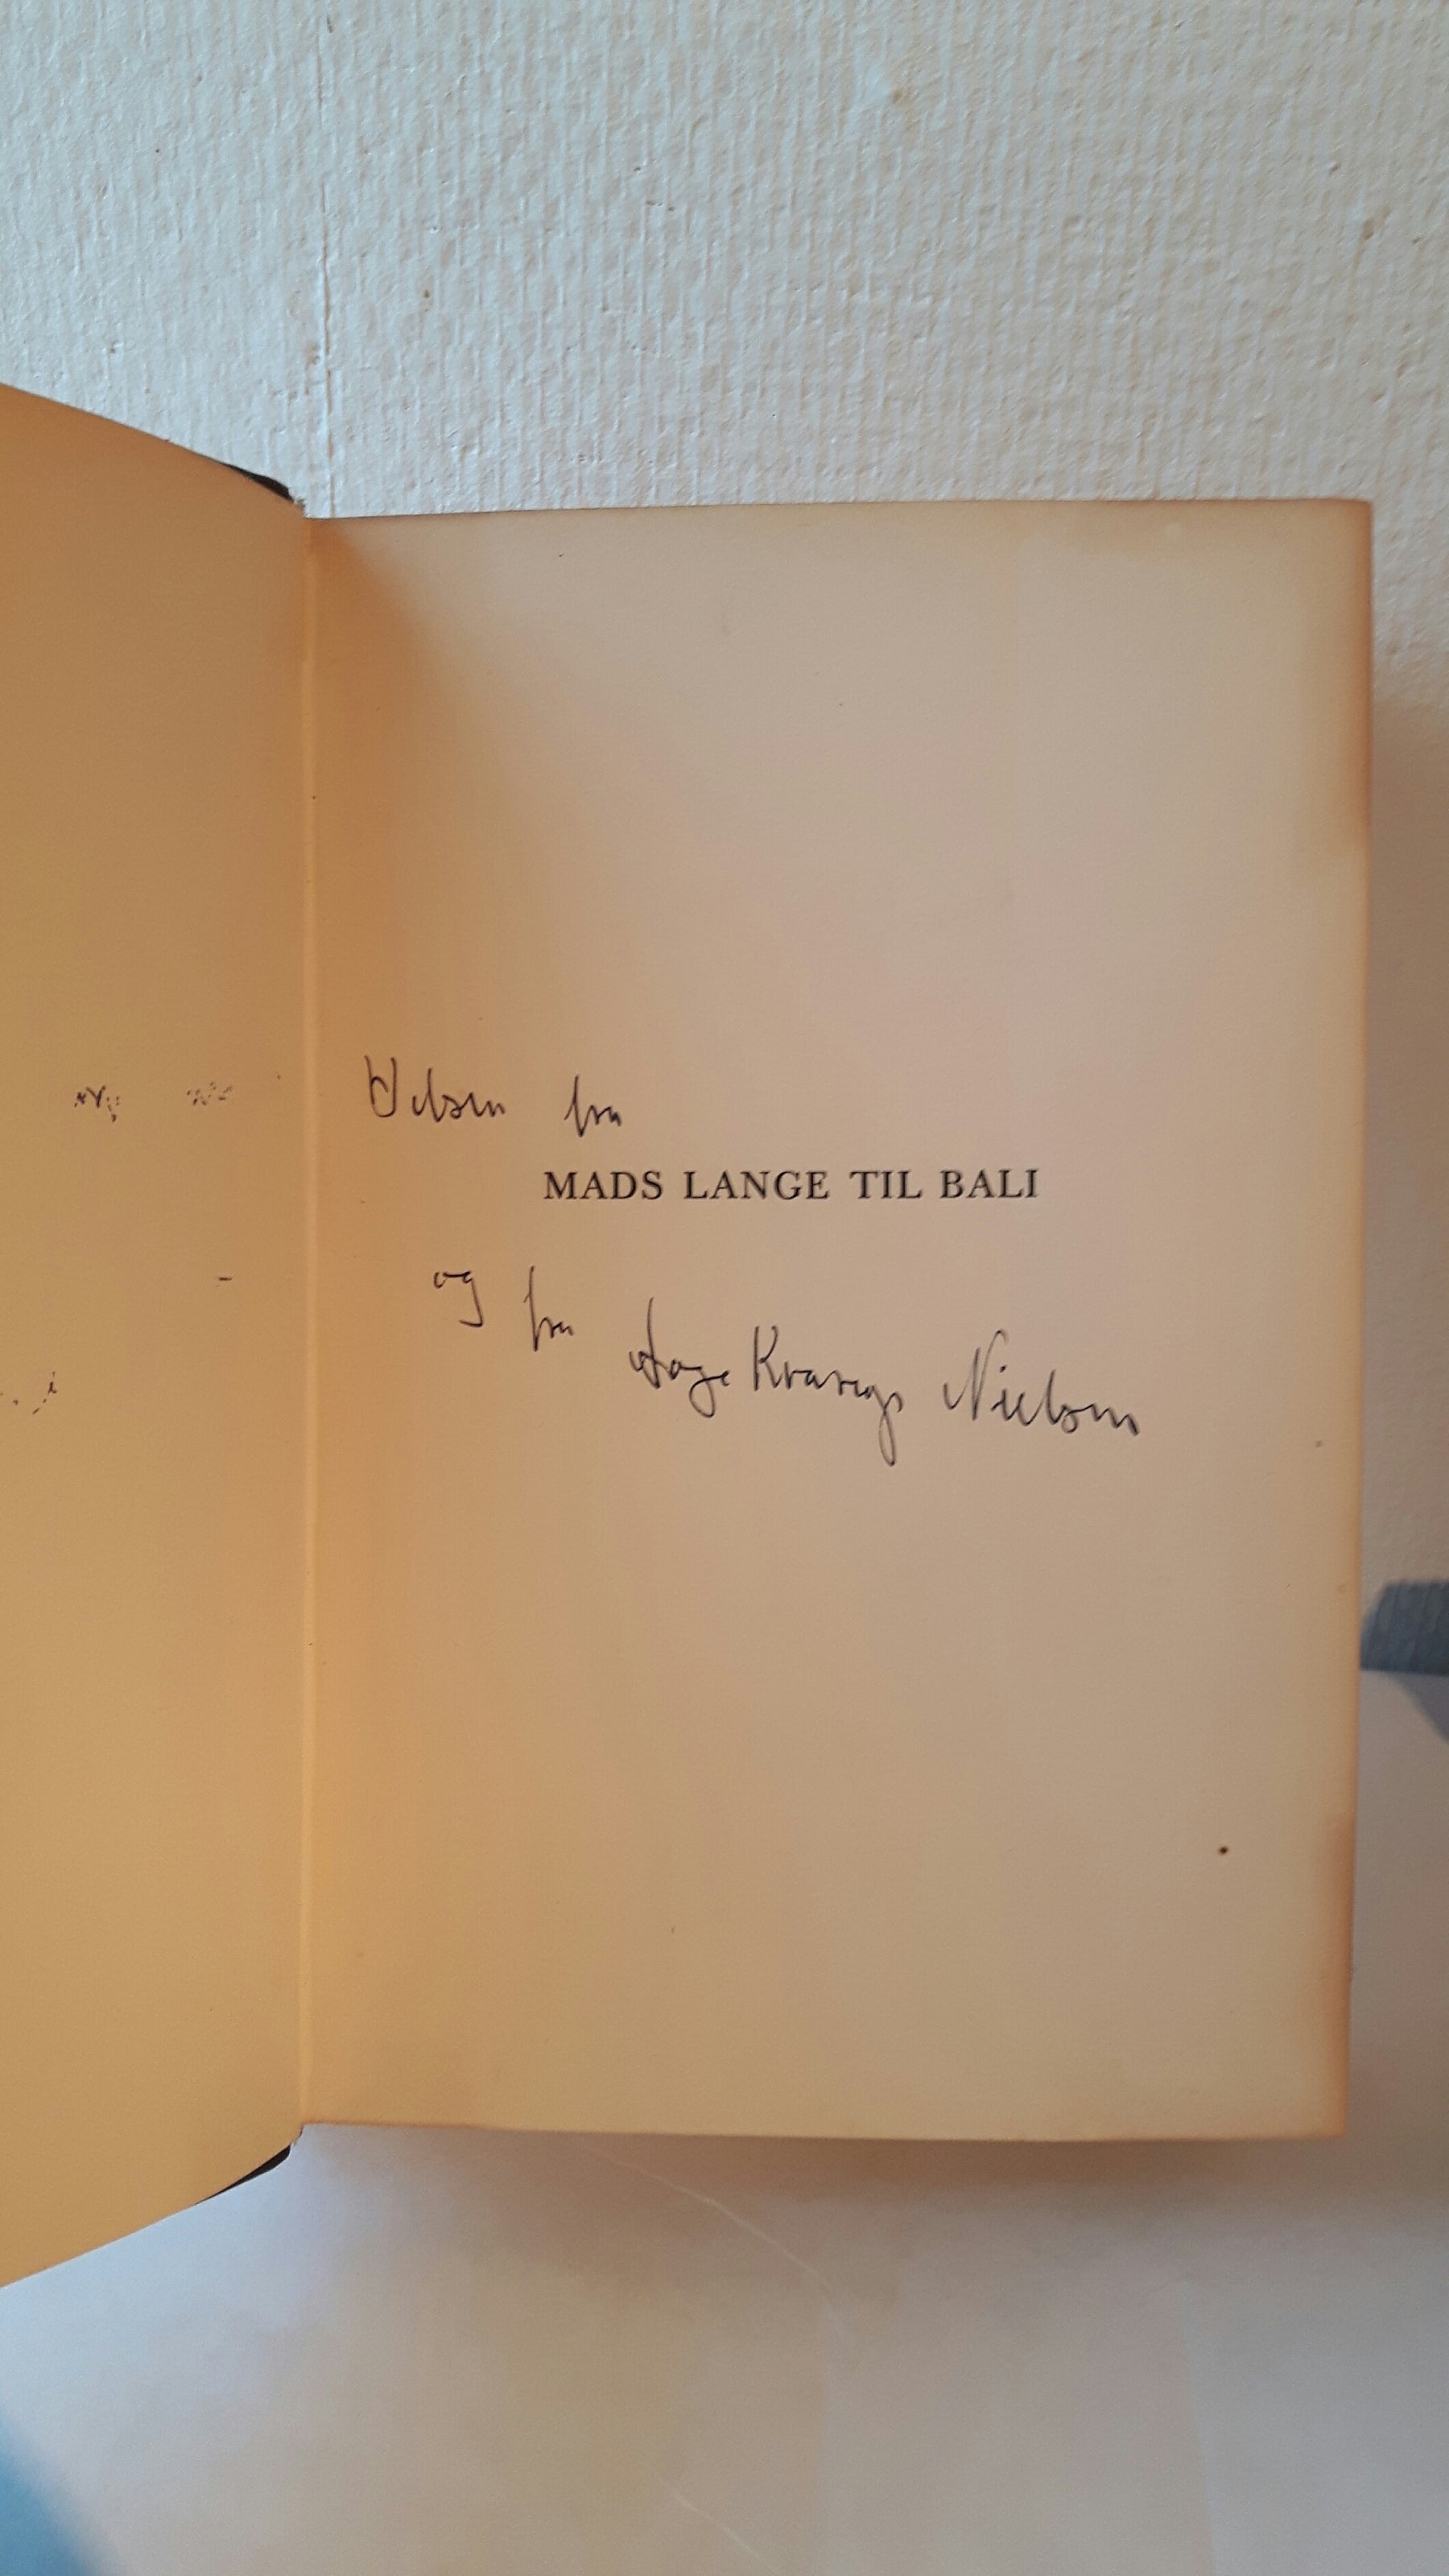 Hilsen fra
MADS LANGE TIL BALI
og fra Aage Krarup Nielsen